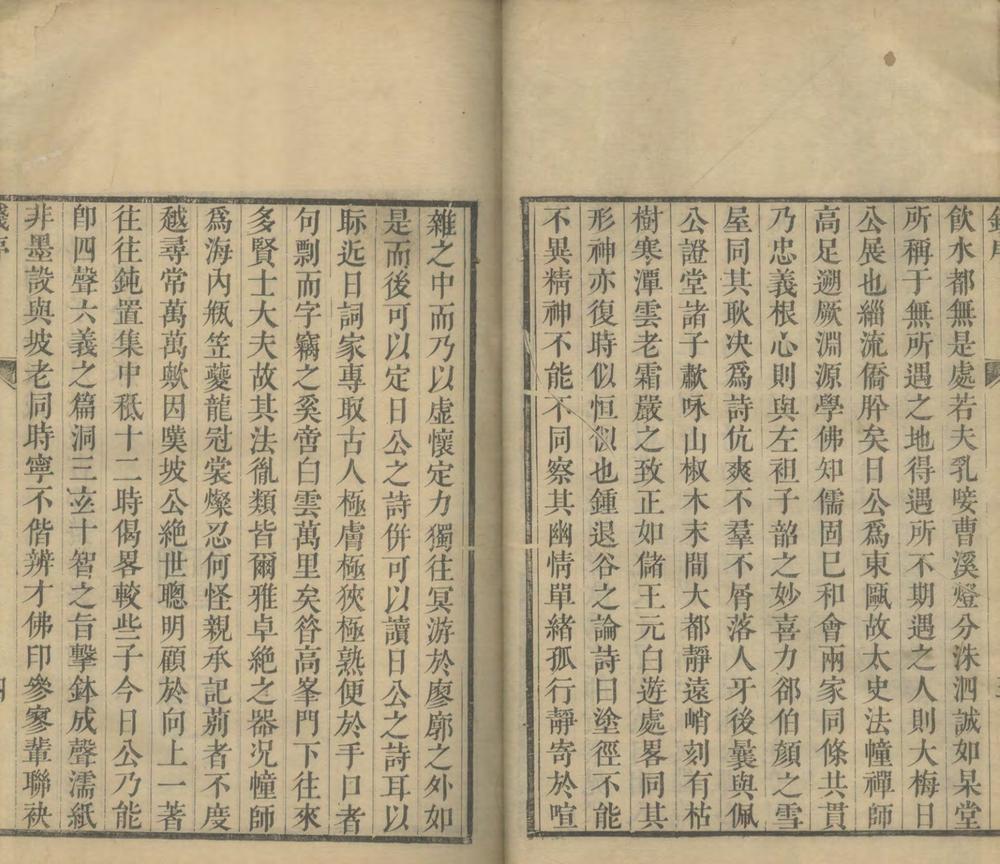 飲水都無是處若夫乳唼曹溪燈分洙泗誠如杲堂
所稱于無所遇之地得遇所不期遇之人則大梅日
公展也緇流僑肸矣日公為東甌故太史法幢禪師
高足遡厥淵源學佛知儒固巳和會兩家同條共貫
乃忠義根心則與左袒子韶之妙喜力郤伯顏之雪
屋同其耿决為詩伉爽不羣不屑落人牙後曩與佩
公證堂諸子歗咏山椒木末間大都靜遠峭刻有枯
樹寒潭雲老霜嚴之致正如儲王元白遊處畧同其
形神亦復時似恒似也鍾退谷之論詩曰塗徑不能
不異精神不能不同察其幽情單緒孤行靜寄於喧
雜之中而乃以虛懷定力獨往冥游於廖廓之外如
是而後可以定日公之詩併可以讀日公之詩耳以
眎近日詞家專取古人極膚極狹極熟便於手口者
句剽而字竊之奚啻白雲萬里矣昝高峯門下往來
多賢士大夫故其法胤類皆爾雅卓絶之器况幢師
爲海內瓶笠夔龍冠裳燦忍何怪親承記莂者不度
越尋常萬萬歟因嘆坡公絶世聰明顧於向上一著
往往鈍置集中秪十二時偈畧較些子今日公乃能
卽四聲六義之篇洞三玄十智之旨擊鉢成聲濡紙
非墨設與坡老同時寧不偕辨才佛印參寥輩聯袂